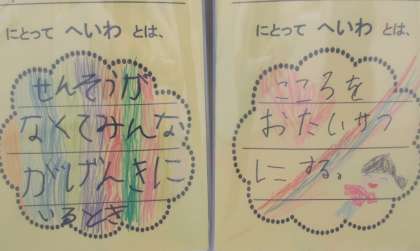 にとって へいわ とは、
せんそうが
なくてみんな
がげんきに
いるとき
にとって へいわ とは、
こころを
おたいせつ
にする。